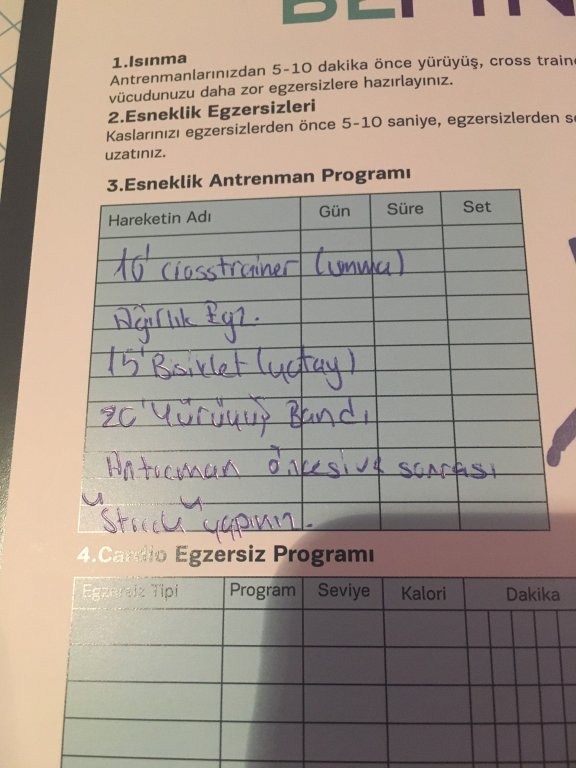 1.Isınma
Antrenmanlarınızdan 5-10 dakika önce yürüyüş, cross
vücudunuzu daha zor egzersizlere hazırlayınız.
2.Esneklik Egzersizleri
Kaslarınızı egzersizlerden önce 5-10 saniye, egzersizlerden
uzatınız.
3.Esneklik Antrenman Programı
Hareketin Adı Gün Süre Set
10' crosstrainer (ısınma)
Ağırlık Egz.
15' Bisiklet (yatay)
20' Yürüyüş Bandı
Antreman öncesi ve sonrası
"Strech" yapınız.
4.Cardio Egzersiz Programı
Egzersiz Tipi Program Seviye Kalori Dakika